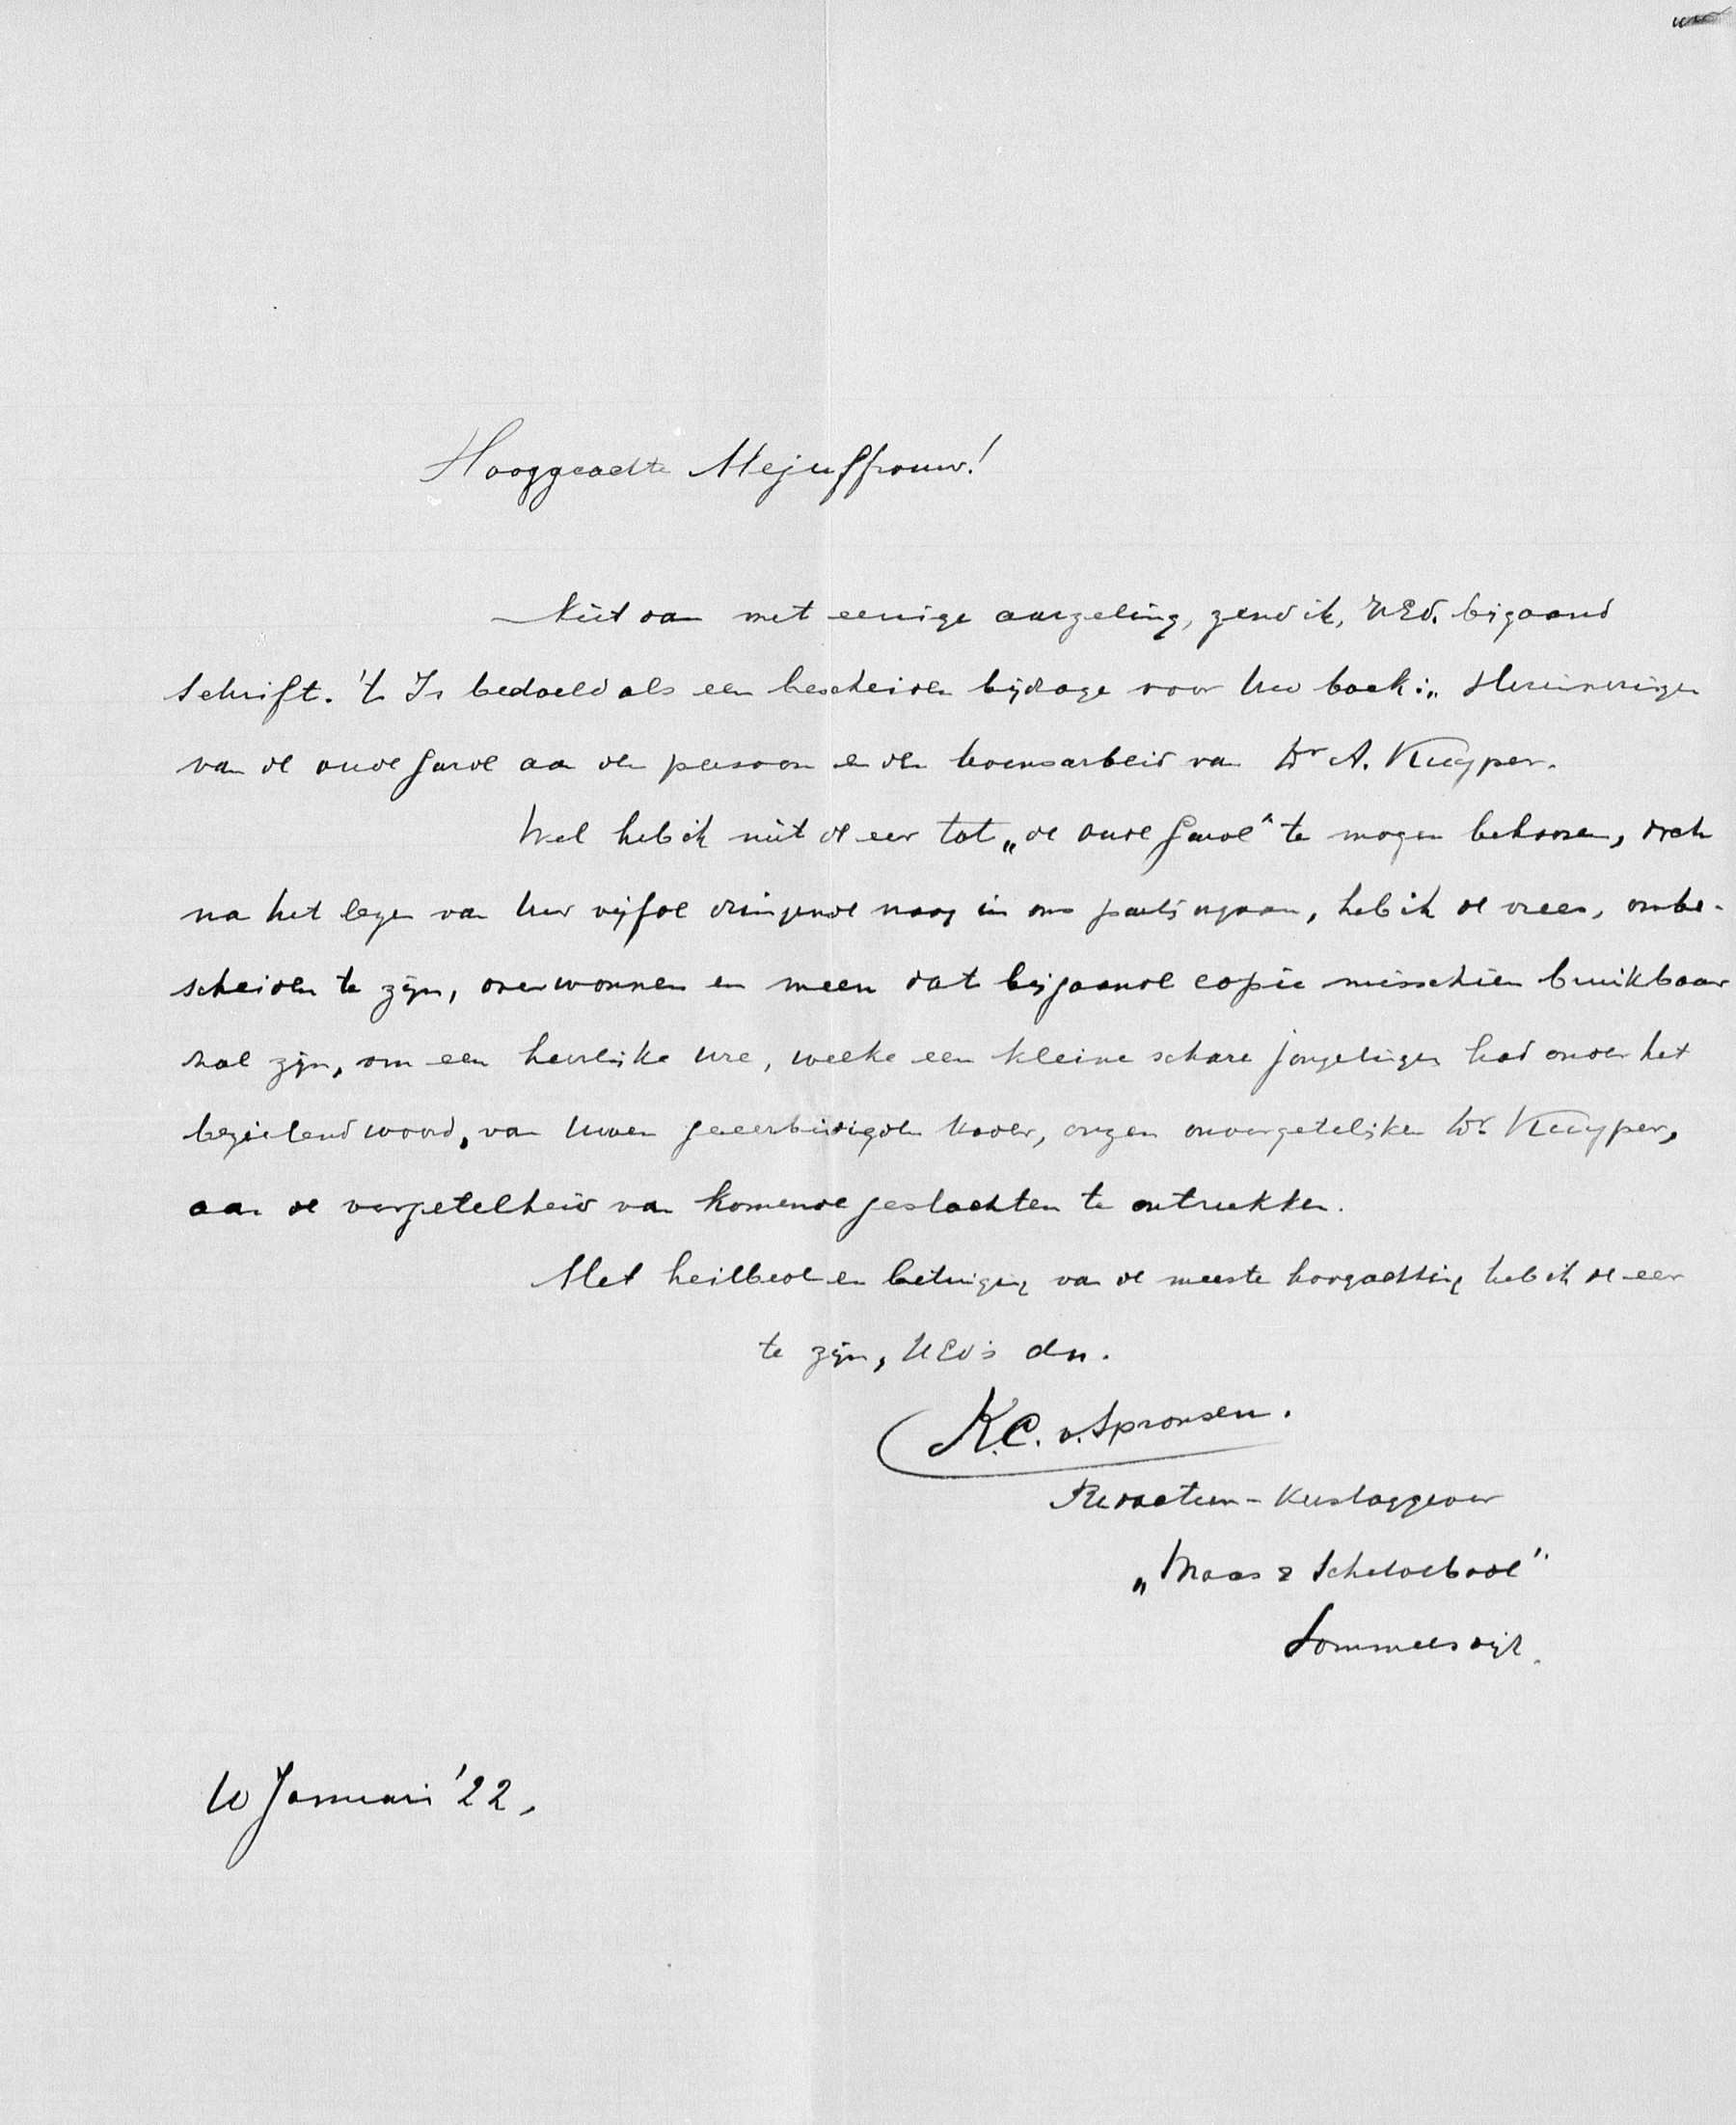 Hooggeachte Mejuffrouw!
Niet dan met eenige aarzeling, zend ik, UEd. bijgaand
schrift. 't Is bedoeld als een bescheiden bijdrage voor Uw boek: „Herinneringen
van de oude garde aan den persoon en den levensarbeid van Dr A. Kuyper.
Wel heb ik niet de eer tot „de oude garde" te mogen behooren, doch
na het lezen van Uw vijfde dringende vraag in ons partijorgaan, heb ik de vrees, onbe-
scheiden te zijn, overwonnen en meen dat bijgaande copie misschien bruikbaar
zal zijn, om een heerlijke ure, welke een kleine schare jongelingen had onder het
bezielend woord, van Uwen geëerbiedigden Vader, onzen onvergetelijken Dr. Kuyper,
aan de vergetelheid van komende geslachten te ontrukken.
Met heilbede en betuiging van de meeste hoogachting heb ik de eer
te zijn, UEd's dn.
K.C. v. Spronsen.
Redacteur-Verslaggever
„Maas & Scheldebode"
Sommelsdijk.
10 Januari '22.